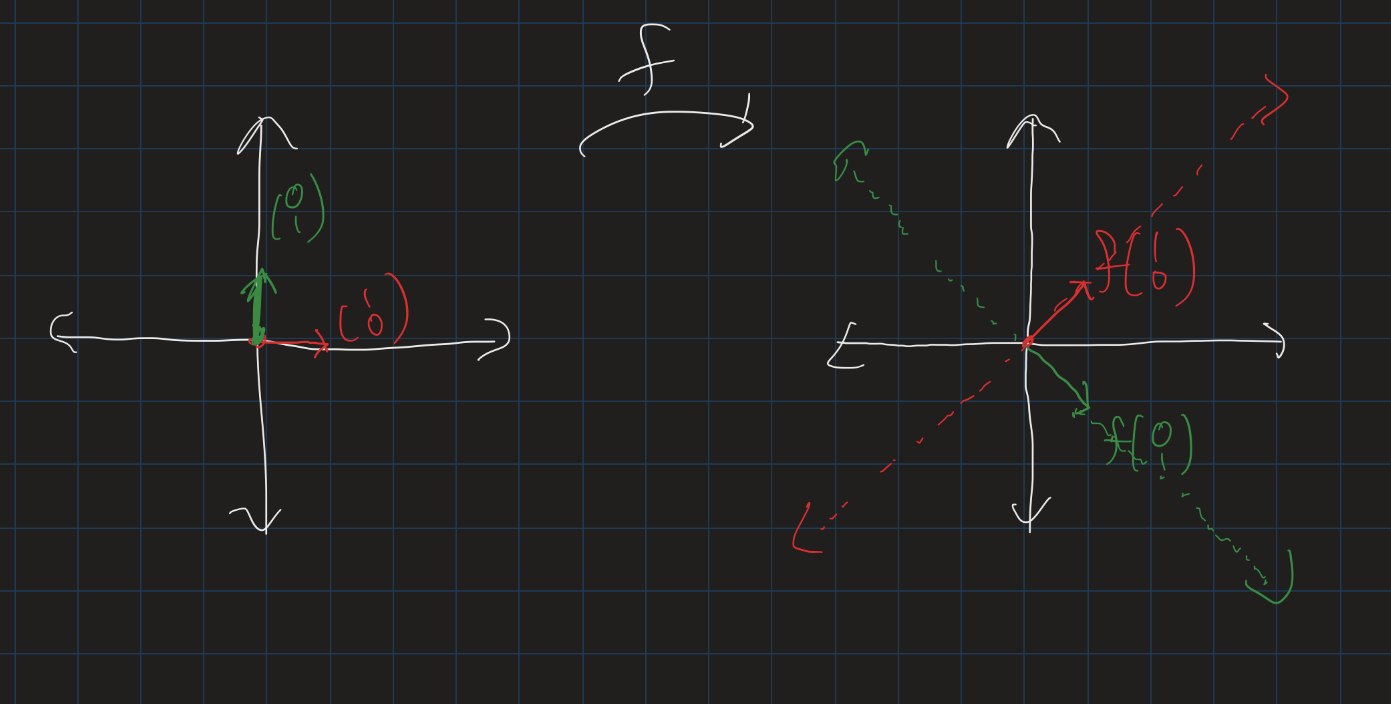 f
(0
1)
(1
0)
f(1
0)
f(0
1)